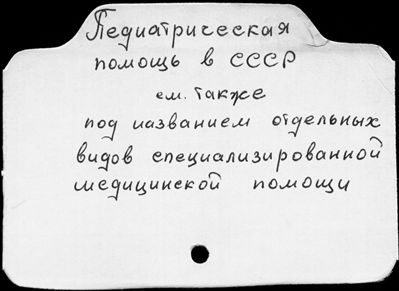 Педиатрическая
помощь в СССР
см. также
под названием отдельных
видов специализированной
медицинской помощи